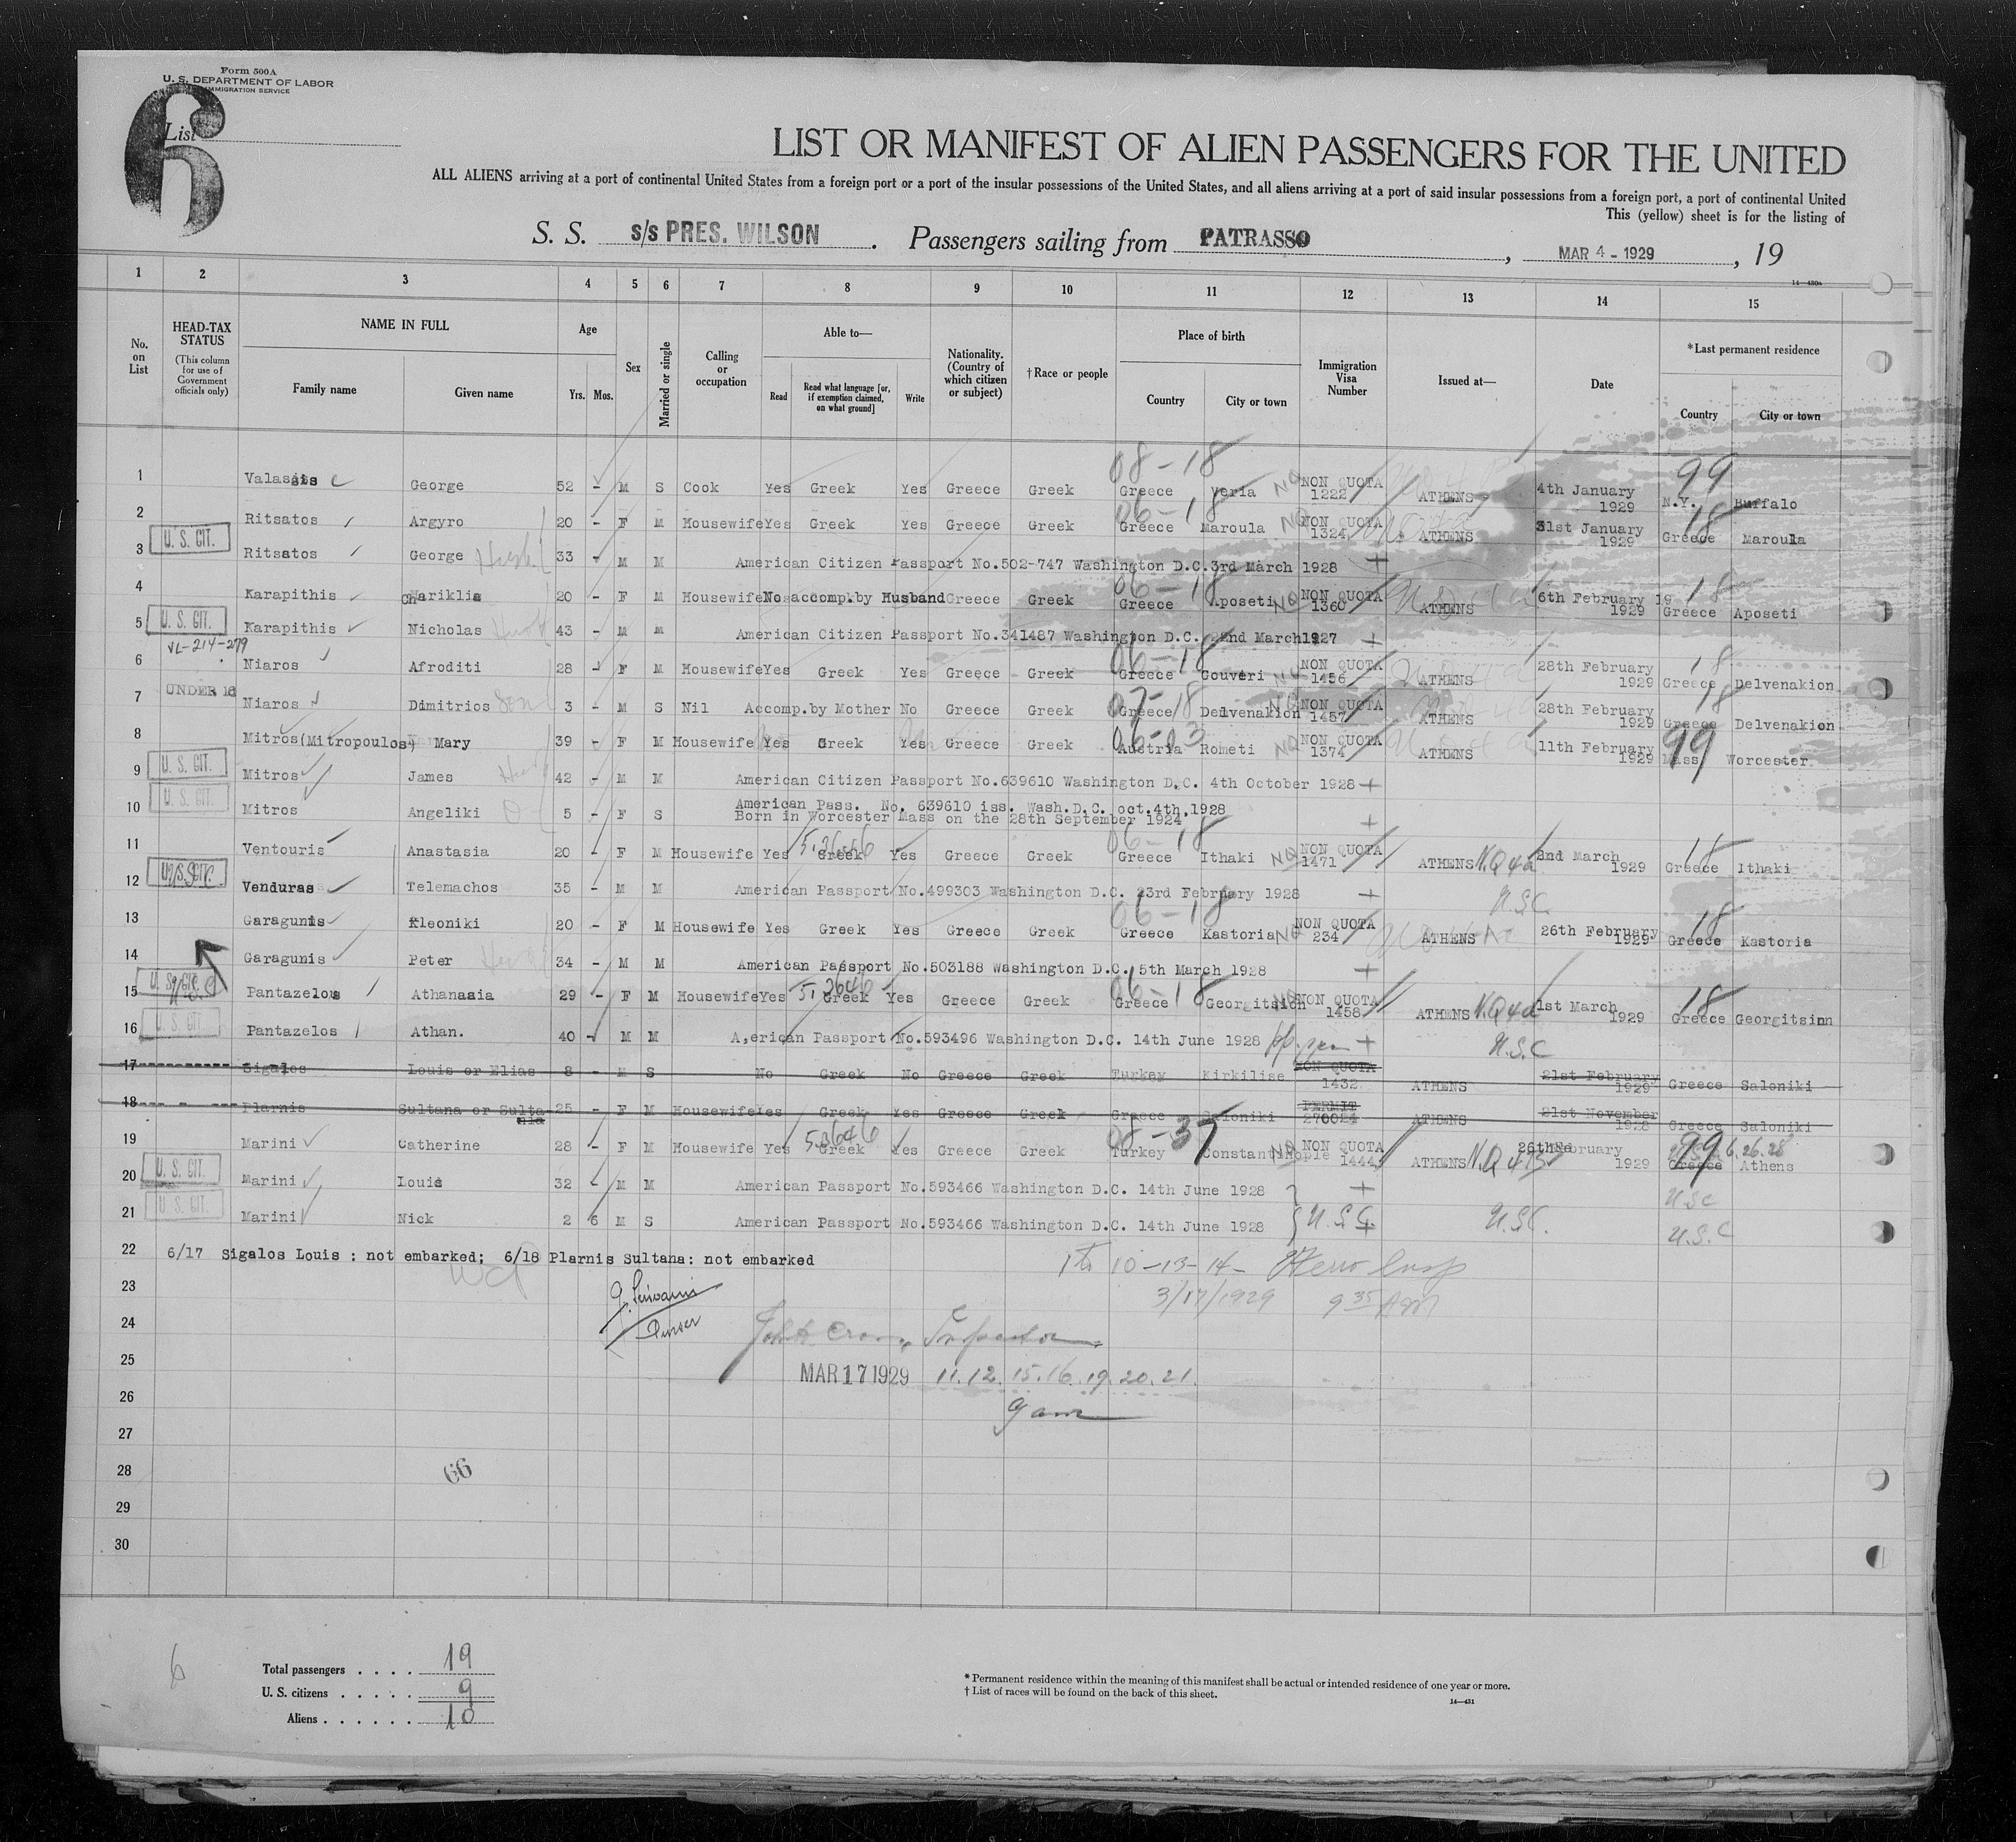 Form 500A
U. S. DEPARTMENT OF LABOR
IMMIGRATION SERVICE
6
List
LIST OR MANIFEST OF ALIEN PASSENGERS FOR THE UNITED
ALL ALIENS arriving at a port of continental United States from a foreign port or a port of the insular possessions of the United States, and all aliens arriving at a port of said insular possessions from a foreign port, a port of continental United
This (yellow) sheet is for the listing of
S. S. s/s PRES. WILSON . Passengers sailing from PATRASSO , MAR 4 - 1929 , 19
14—430a
1 2 3 4 5 6 7 8 9 10 11 12 13 14 15
No. on List
HEAD-TAX STATUS (This column for use of Government officials only)
NAME IN FULL
Family name Given name
Age
Yrs. Mos.
Sex
Married or single
Calling or occupation
Able to—
Read Read what language [or, if exemption claimed, on what ground] Write
Nationality. (Country of which citizen or subject)
†Race or people
Place of birth
Country City or town
Immigration Visa Number
Issued at—
Date
*Last permanent residence
Country City or town
08-18 99
1 Valassis George 52 - M S Cook Yes Greek Yes Greece Greek Greece Veria NQ NON QUOTA 1222 ATHENS 4th January 1929 N.Y. Buffalo
06-18 18
2 Ritsatos Argyro 20 - F M Housewife Yes Greek Yes Greece Greek Greece Maroula NQ NON QUOTA 1324 ATHENS 31st January 1929 Greece Maroula
U. S. CIT.
3 Ritsatos George 33 - M M American Citizen Passport No.502-747 Washington D.C. 3rd March 1928 +
06-18 18
4 Karapithis Chariklia 20 - F M Housewife No accomp.by Husband Greece Greek Greece Aposeti NQ NON QUOTA 1360 ATHENS 6th February 19 1929 Greece Aposeti
U. S. CIT.
5 Karapithis Nicholas 43 - M M American Citizen Passport No.341487 Washington D.C. 22nd March 1927 +
VL-214-279
06-18 18
6 Niaros Afroditi 28 - F M Housewife Yes Greek Yes Greece Greek Greece Gouveri NON QUOTA 1456 ATHENS 28th February 1929 Greece Delvenakion
UNDER 16
07-18 18
7 Niaros Dimitrios Son 3 - M S Nil Accomp.by Mother No Greece Greek Greece Delvenakion NON QUOTA 1457 ATHENS 28th February 1929 Greece Delvenakion
06-03 99
8 Mitros(Mitropoulos) Mary 39 - F M Housewife Yes Greek Yes Greece Greek Austria Rometi NQ NON QUOTA 1374 ATHENS 11th February 1929 Mass Worcester
U. S. CIT.
9 Mitros James 42 - M M American Citizen Passport No.639610 Washington D.C. 4th October 1928 +
U. S. CIT.
10 Mitros Angeliki 5 - F S American Pass. No. 639610 iss. Wash.D.C. oct.4th,1928
Born in Worcester Mass on the 28th September 1924 +
06-18 18
11 Ventouris Anastasia 20 - F M Housewife Yes Greek Yes Greece Greek Greece Ithaki NQ NON QUOTA 1471 ATHENS N.Q 4a 2nd March 1929 Greece Ithaki
12 Venduras Telemachos 35 - M M American Passport No.499303 Washington D.C. 23rd February 1928 + U.S.C.
06-18 18
13 Garagunis Kleoniki 20 - F M Housewife Yes Greek Yes Greece Greek Greece Kastoria NQ NON QUOTA 234 ATHENS 26th February 1929 Greece Kastoria
14 Garagunis Peter 34 - M M American Passport No.503188 Washington D.C. 5th March 1928 +
06-18 18
15 Pantazelous Athanasia 29 - F M Housewife Yes Greek Yes Greece Greek Greece Georgitsion NON QUOTA 1458 ATHENS N.Q 4a 1st March 1929 Greece Georgitsinn
U. S. CIT.
16 Pantazelos Athan. 40 - M M A,erican Passport No.593496 Washington D.C. 14th June 1928 + U.S.C
17 Sigalos Louis or Elias 8 - M S No Greek No Greece Greek Turkey Kirkilise NON QUOTA 1432 ATHENS 21st February 1929 Greece Saloniki
18 Plarnis Sultana or Sultania 25 - F M Housewife Yes Greek Yes Greece Greek Greece Saloniki PERMIT 270024 ATHENS 21st November 1928 Greece Saloniki
53646 08-37 99 6.26.28
19 Marini Catherine 28 - F M Housewife Yes Greek Yes Greece Greek Turkey Constantinople NQ NON QUOTA 1444 ATHENS 26th February 1929 Greece Athens
U. S. CIT.
20 Marini Louis 32 - M M American Passport No.593466 Washington D.C. 14th June 1928 + USC
U. S. CIT.
21 Marini Nick 2 6 M S American Passport No.593466 Washington D.C. 14th June 1928 U.S.C. + U.S.C. U.S.C
22 6/17 Sigalos Louis : not embarked; 6/18 Plarnis Sultana: not embarked
1 to 10-13-14-
23 3/17/1929 9 35 AM
24 Inspector
25 MAR 17 1929 11.12.15.16.19.20.21.
26 9 am
27
28 66
29
30
6
Total passengers . . . . 19
U. S. citizens . . . . . 9
Aliens . . . . . . 10
* Permanent residence within the meaning of this manifest shall be actual or intended residence of one year or more.
† List of races will be found on the back of this sheet.
14—431